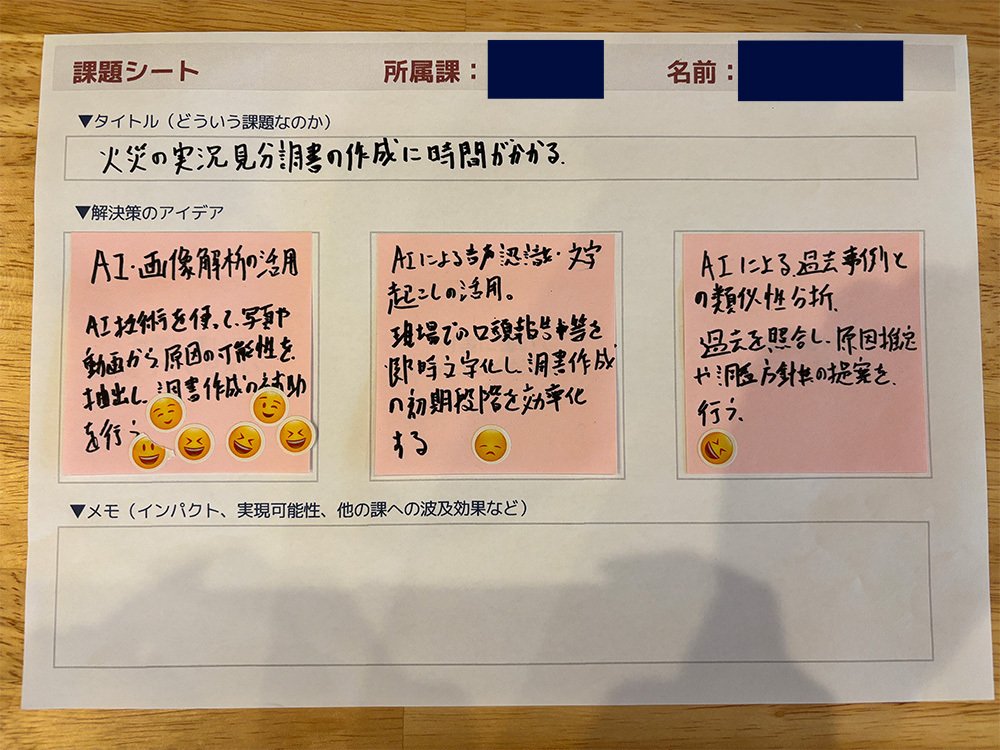 課題シート 所属課： 名前：
▼タイトル（どういう課題なのか）
火災の実況見分調書の作成に時間がかかる.
▼解決策のアイデア
AI・画像解析の活用
AI技術を使って、写真や
動画から原因の可能性を
抽出し、調書作成の補助
を行う
AIによる音声認識・文字
起こしの活用。
現場での口頭報告等を
即時文字化し、調書作成
の初期段階を効率化
する
AIによる過去事例と
の類似性分析.
過去を照合し、原因推定
や調査方針の提案を
行う.
▼メモ（インパクト、実現可能性、他の課への波及効果など）